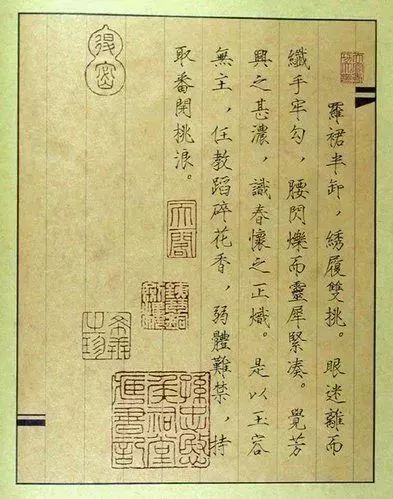 羅裙半卸，綉履雙挑。眼迷離而
纖手牢勾，腰閃爍而靈犀緊湊。覺芳
興之甚濃，識春懷之正熾。是以玉容
無主，任教蹈碎花香，弱體難禁，持
取番開桃浪。
孫忠愍
侯祠堂
藏書記